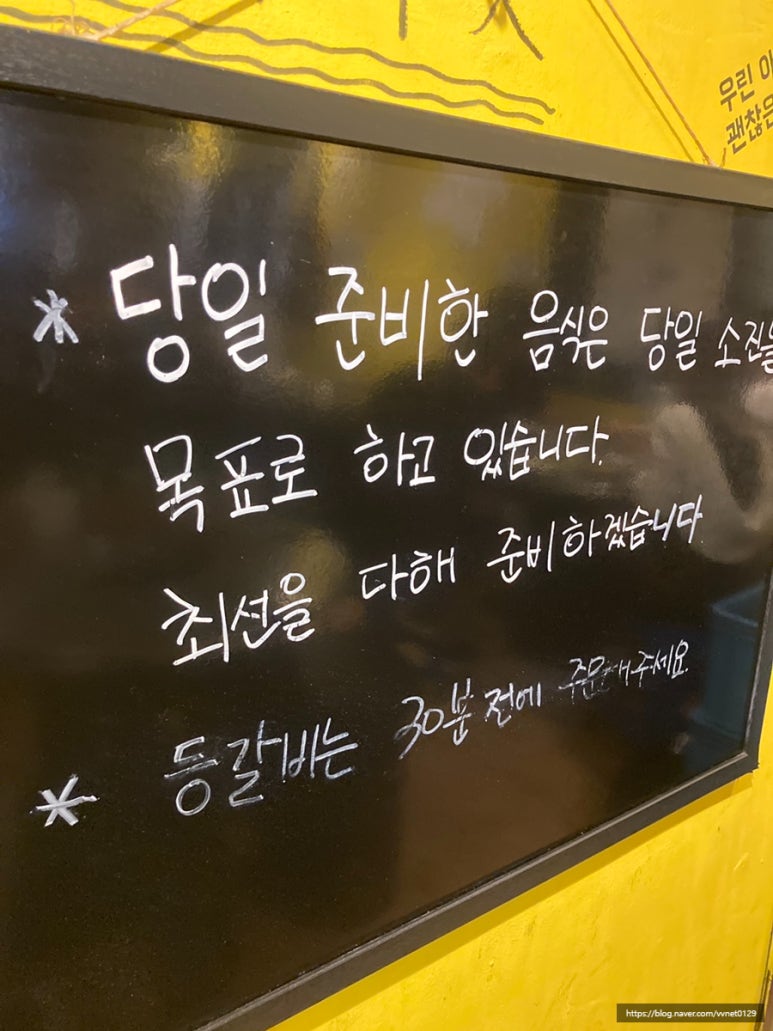 우린
괜찮은
* 당일 준비한 음식은 당일 소진을
목표로 하고 있습니다.
최선을 다해 준비하겠습니다
* 등갈비는 30분 전에 주문해주세요.
https://blog.naver.com/vvnet0129